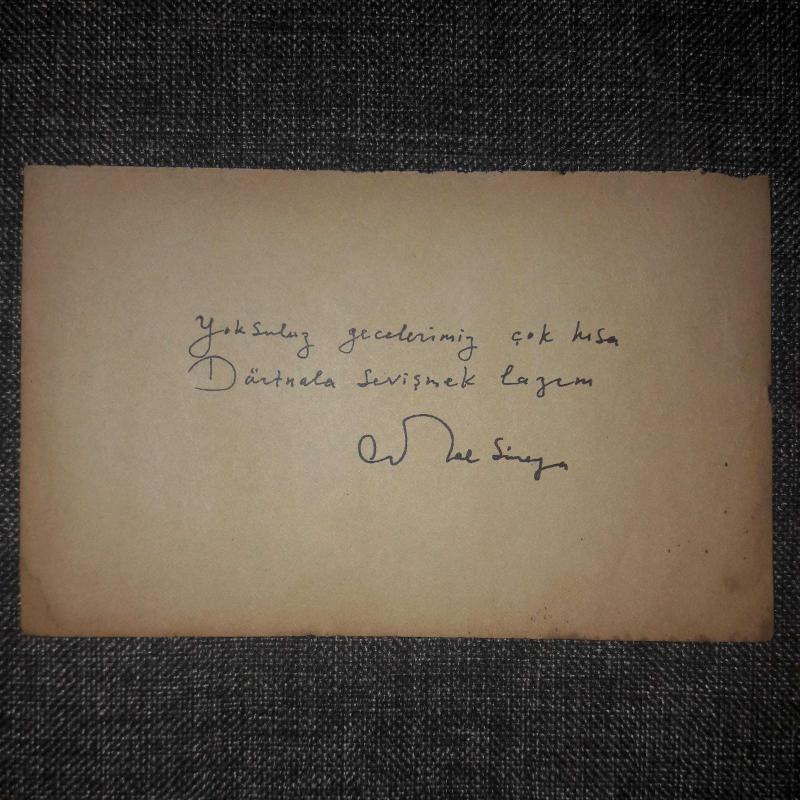 Yoksuluz gecelerimiz çok kısa
Dörtnala sevişmek lazım
Cemal Süreya